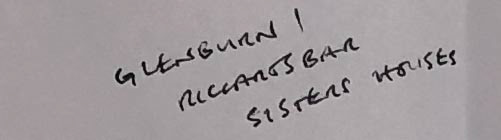 GLENSBURN /
RICCARTSBAR
SISTERS HOUSES